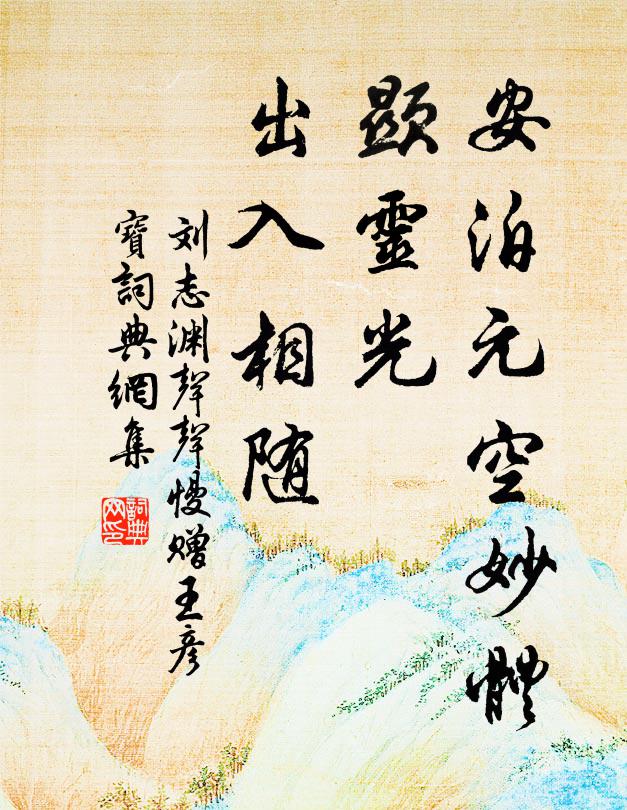 安泊元空妙體
顯靈光
出入相随
刘志渊聲聲慢赠王彦
寶詞典網集
詞典
网印